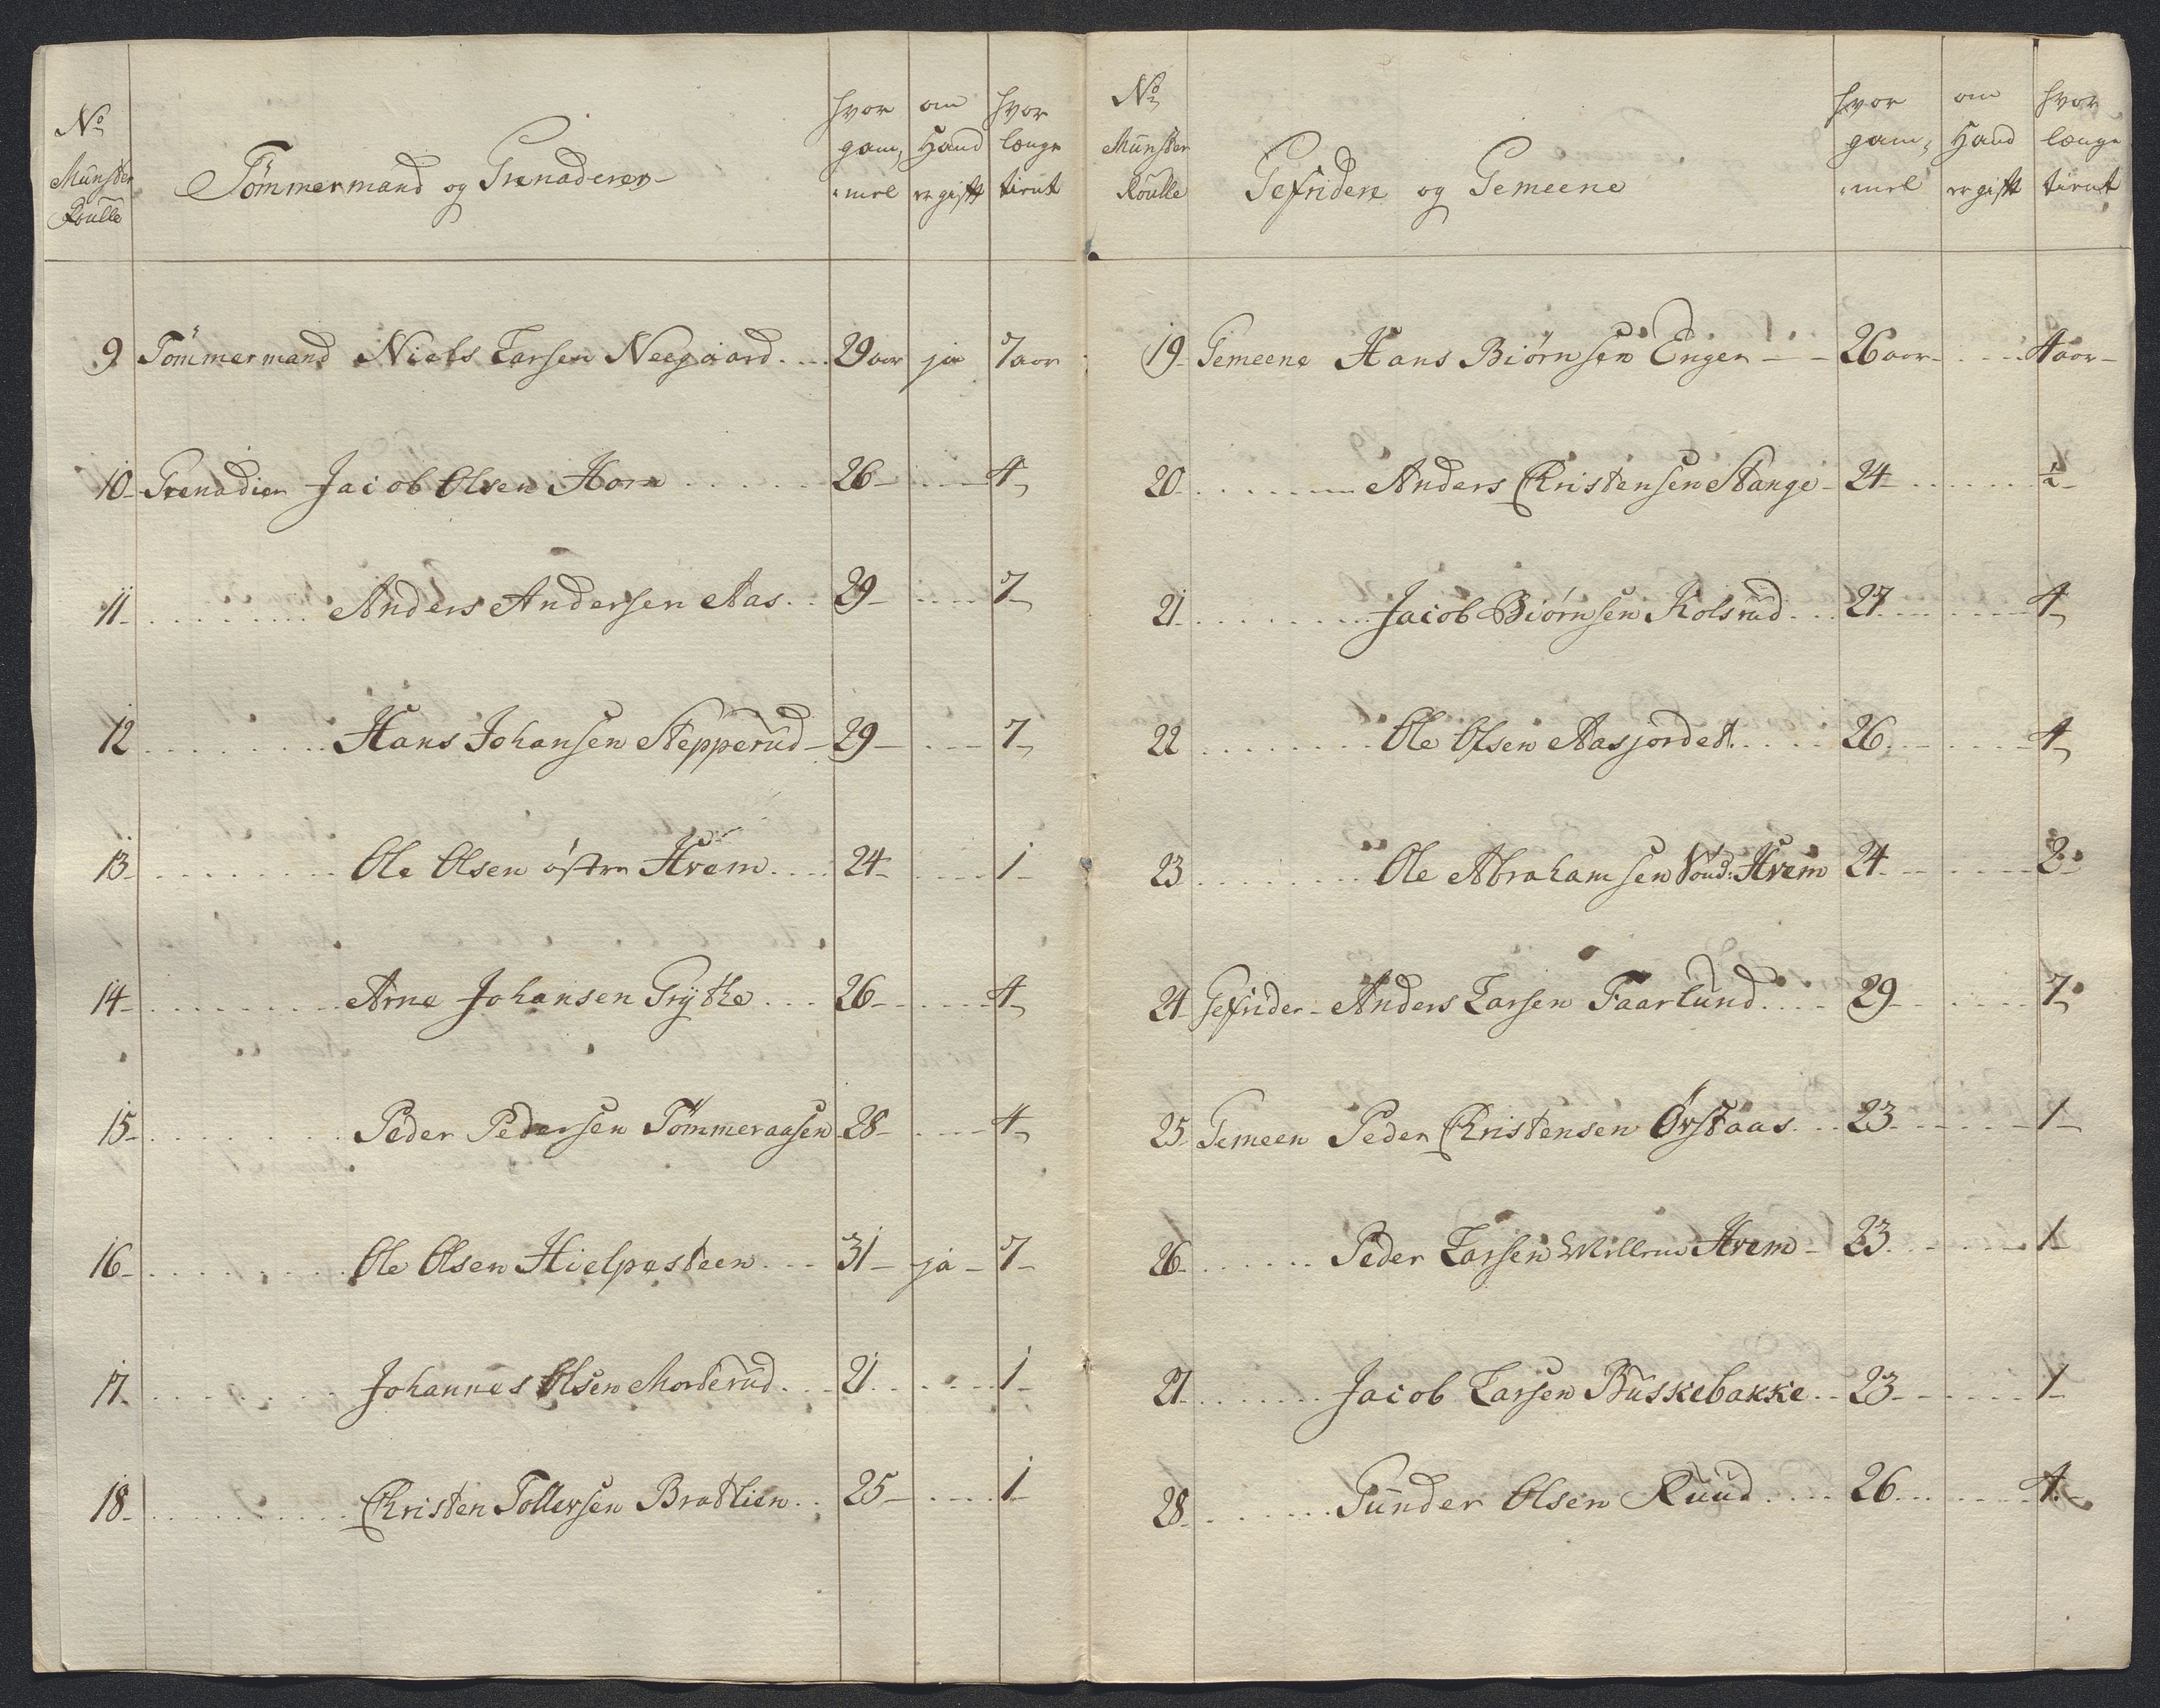 No
Munster
Roulle
Tömmermand og Grenaderer
hvor
gam,
mel
om
Hand
er gift
hvor
længe
tient
9 Tömmermand Niels Larsen Neegaard 29 aar ja 7 aar
10 Grenadier Jacob Olsen Horn 26 4
11 Anders Andersen Aas 29 7
12 Hans Johansen Stepperud 29 7
13 Ole Olsen östre Hvem 24 1
14 Arne Johansen Grythe 26 4
15 Peder Pedersen Tömmeraasen 28 4
16 Ole Olsen Hielpesteen 31 ja 7
17 Johannes Olsen Morterud 21 1
18 Christen Tollersen Bratlien 25 1
No
Munster
Roulle
Gefridere og Gemeene
hvor
gam,
mel
om
Hand
er gift
hvor
længe
tient
19 Gemeene Hans Biörnsen Enger 26 aar 4 aar
20 Anders Christensen Stange 24 ½
21 Jacob Biörnsen Kolsrud 27 4
22 Ole Olsen Aasjordet 26 4
23 Ole Abrahamsen Nond: Hvem 24 2
24 Gefrider Anders Larsen Faarlund 29 7
25 Gemeen Peder Christensen Ørstaas 23 1
26 Peder Larsen Mellem Hvem 23 1
27 Jacob Larsen Buskebakke 23 1
28 Gunder Olsen Ruud 26 4